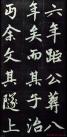 六年距公葬八
年矣而其子治
丙余文其隧上